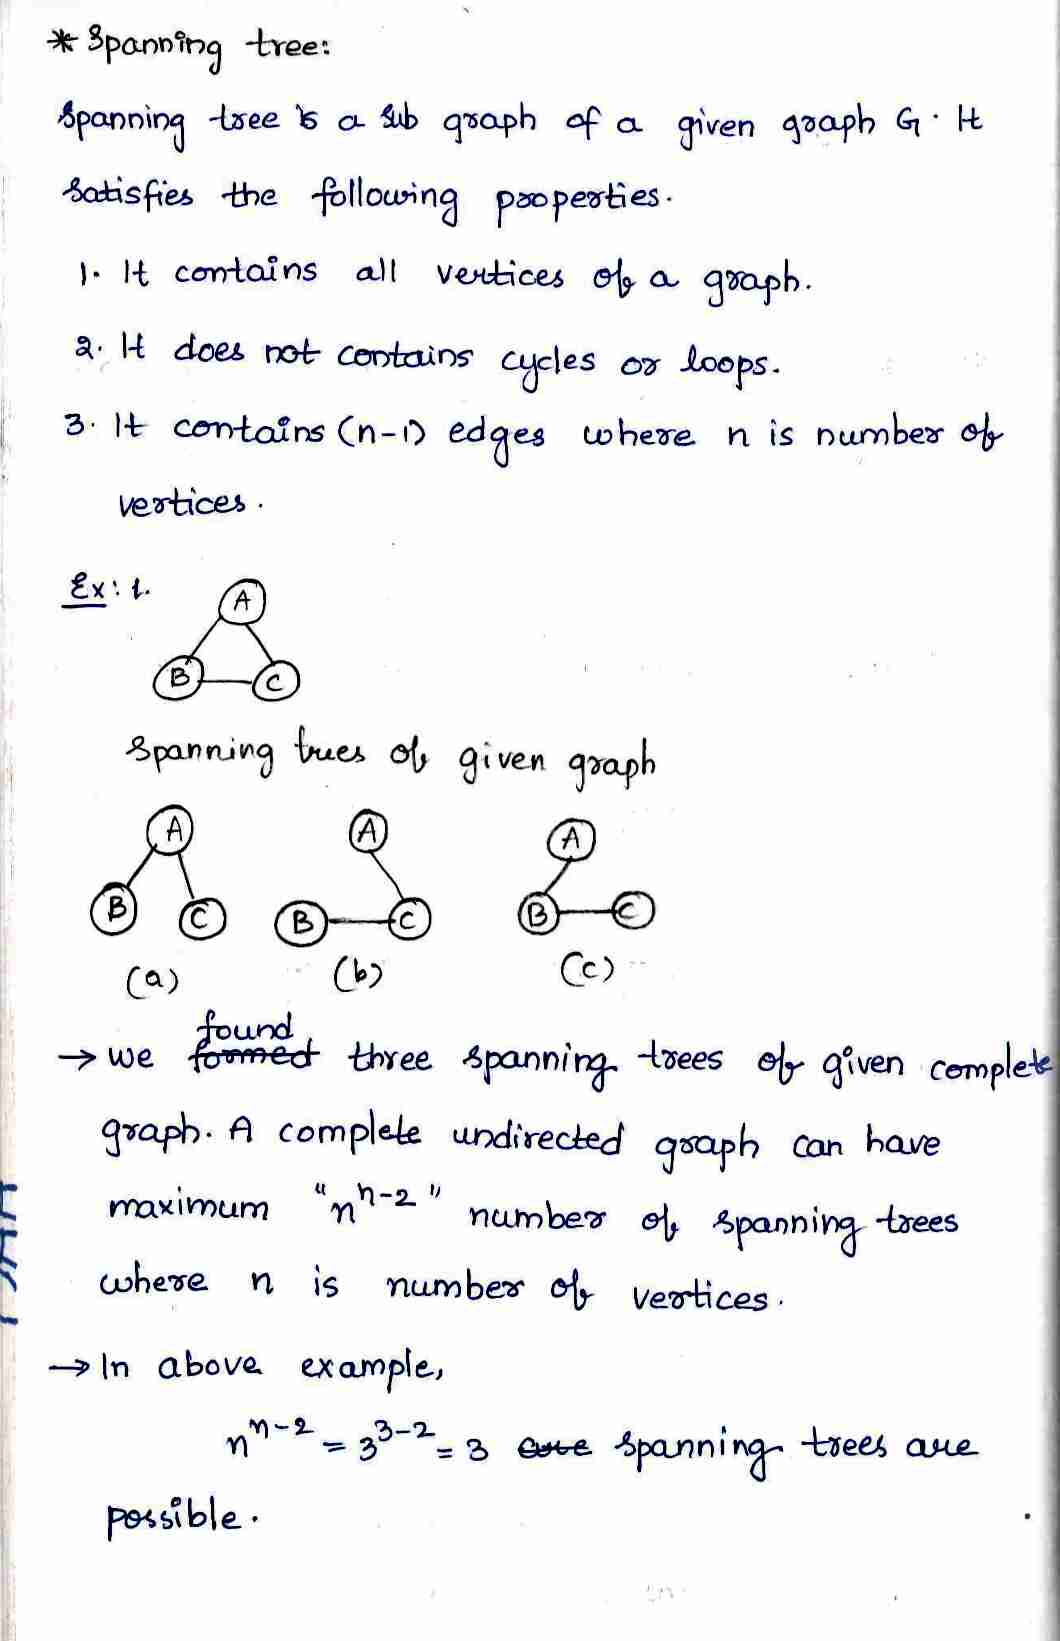 * Spanning tree:
Spanning tree is a sub graph of a given graph G. It
satisfies the following properties.
1. It contains all vertices of a graph.
2. It does not contains cycles or loops.
3. It contains (n-1) edges where n is number of
vertices.
Ex: 1.
A
B C
Spanning trees of given graph
A A A
B C B C B C
(a) (b) (c)
found
→ we formed three spanning trees of given complete
graph. A complete undirected graph can have
maximum "n^{n-2}" number of spanning trees
where n is number of vertices.
→ In above example,
n^{n-2} = 3^{3-2} = 3 are spanning trees are
possible.